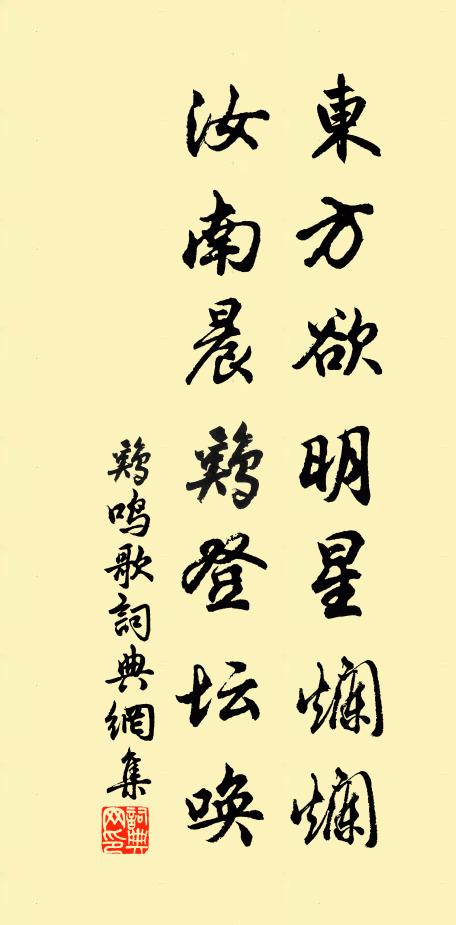 東方欲明星爛爛
汝南晨鷄登坛唤
鷄鸣歌詞典網集
詞典网印